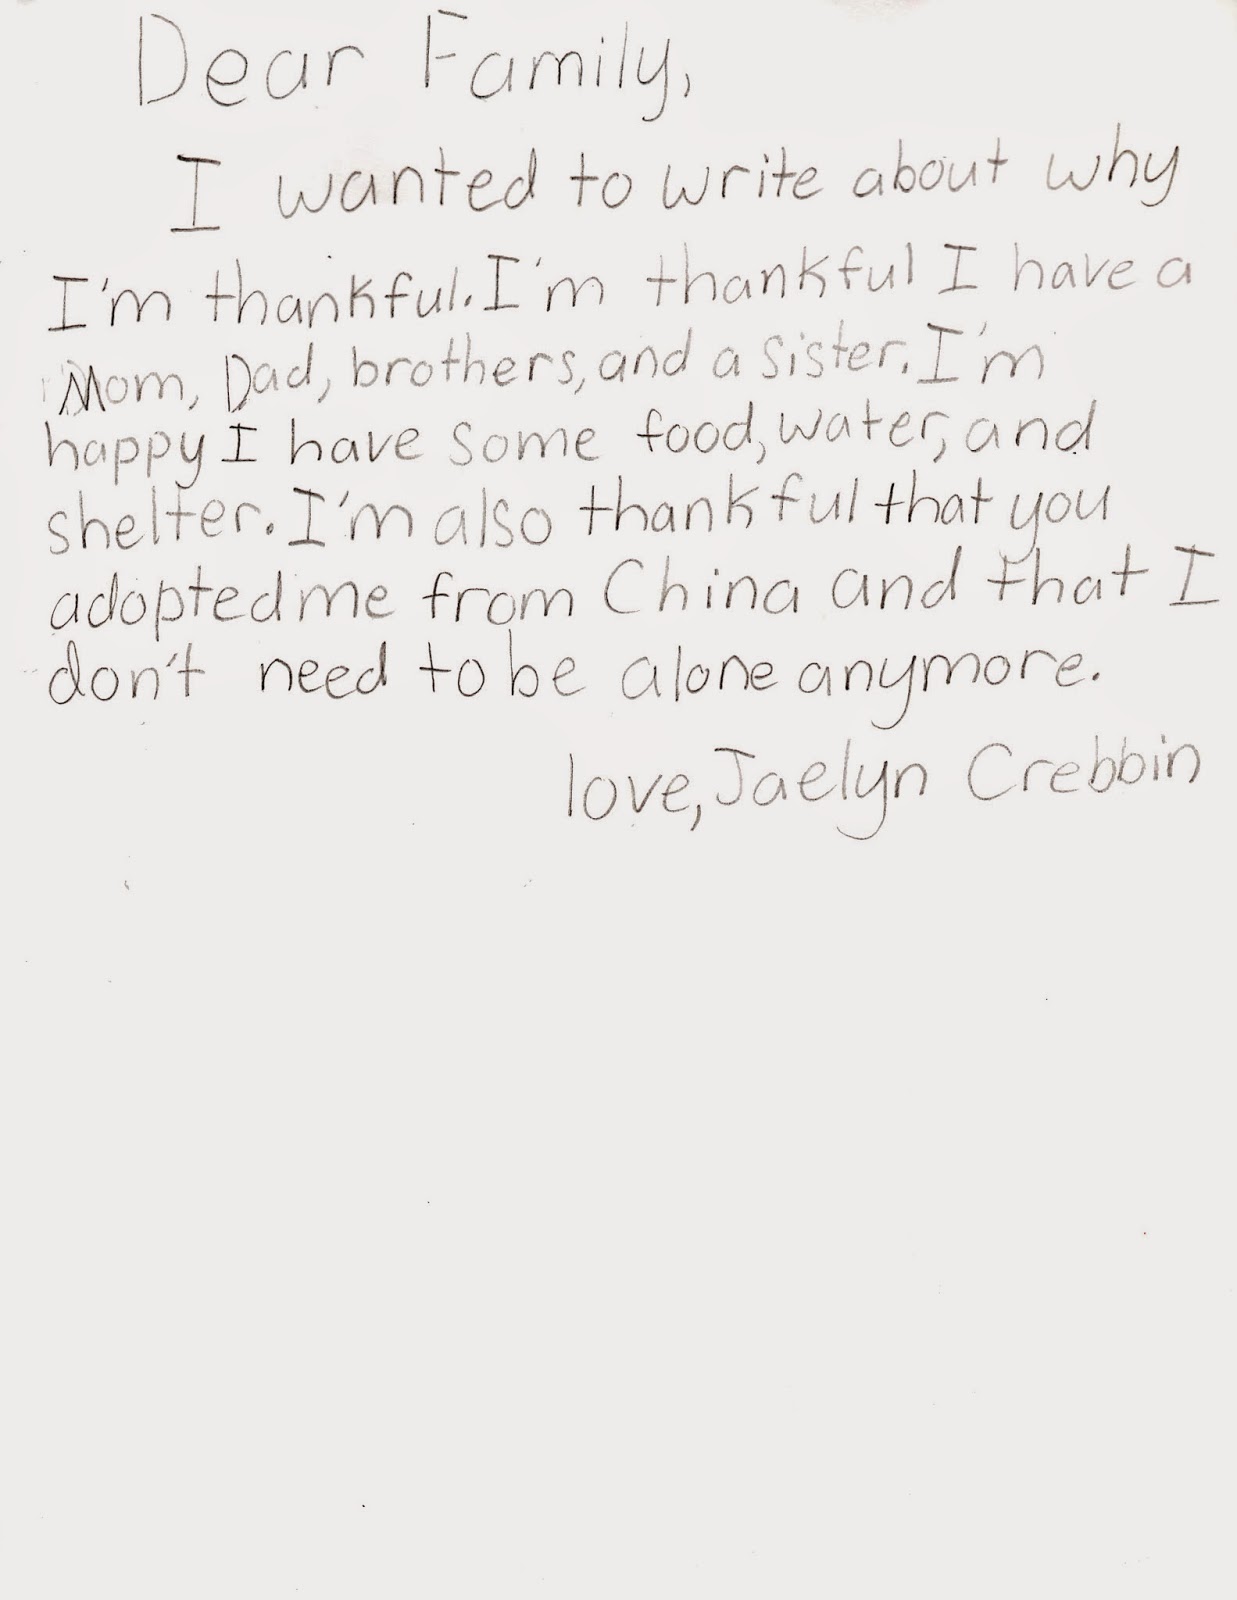 Dear Family,
I wanted to write about why
I'm thankful. I'm thankful I have a
Mom, Dad, brothers, and a sister. I'm
happy I have some food, water, and
shelter. I'm also thankful that you
adopted me from China and that I
don't need to be alone anymore.
love, Jaelyn Crebbin